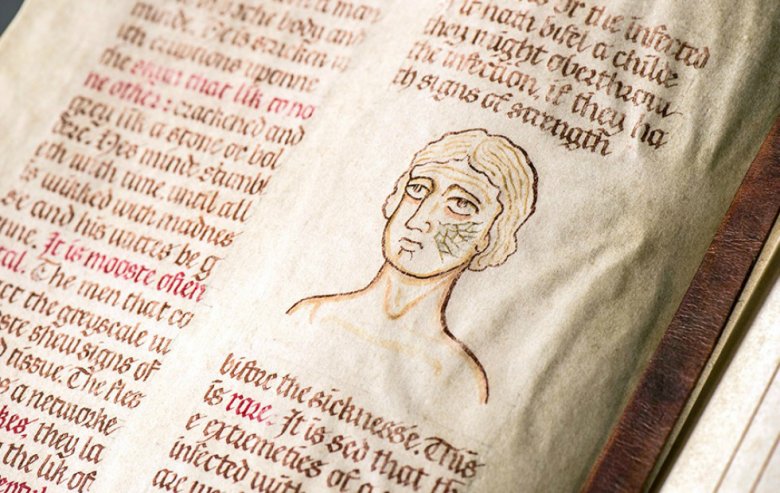 the body and
munde. He is stricken in
th eruptions uponne
the skynt that lik to no
ne other: crackened and
grey lik a stone or bol
His mind stumbl
eth with tyne until all
is wikked with madnes
se and his wittes be g
onne. It is mooste often
The men that co
the greyscale w
ste shew signs of
tissue. The fles
s a networke
they la
the lik of
or the infected
if hath bifel a childe
they might oberthrow
the infection, if they ha
th signs of strength
bifore the sicknesse. This
is rare. It is sed that th
e extremeties of a
infected with
are